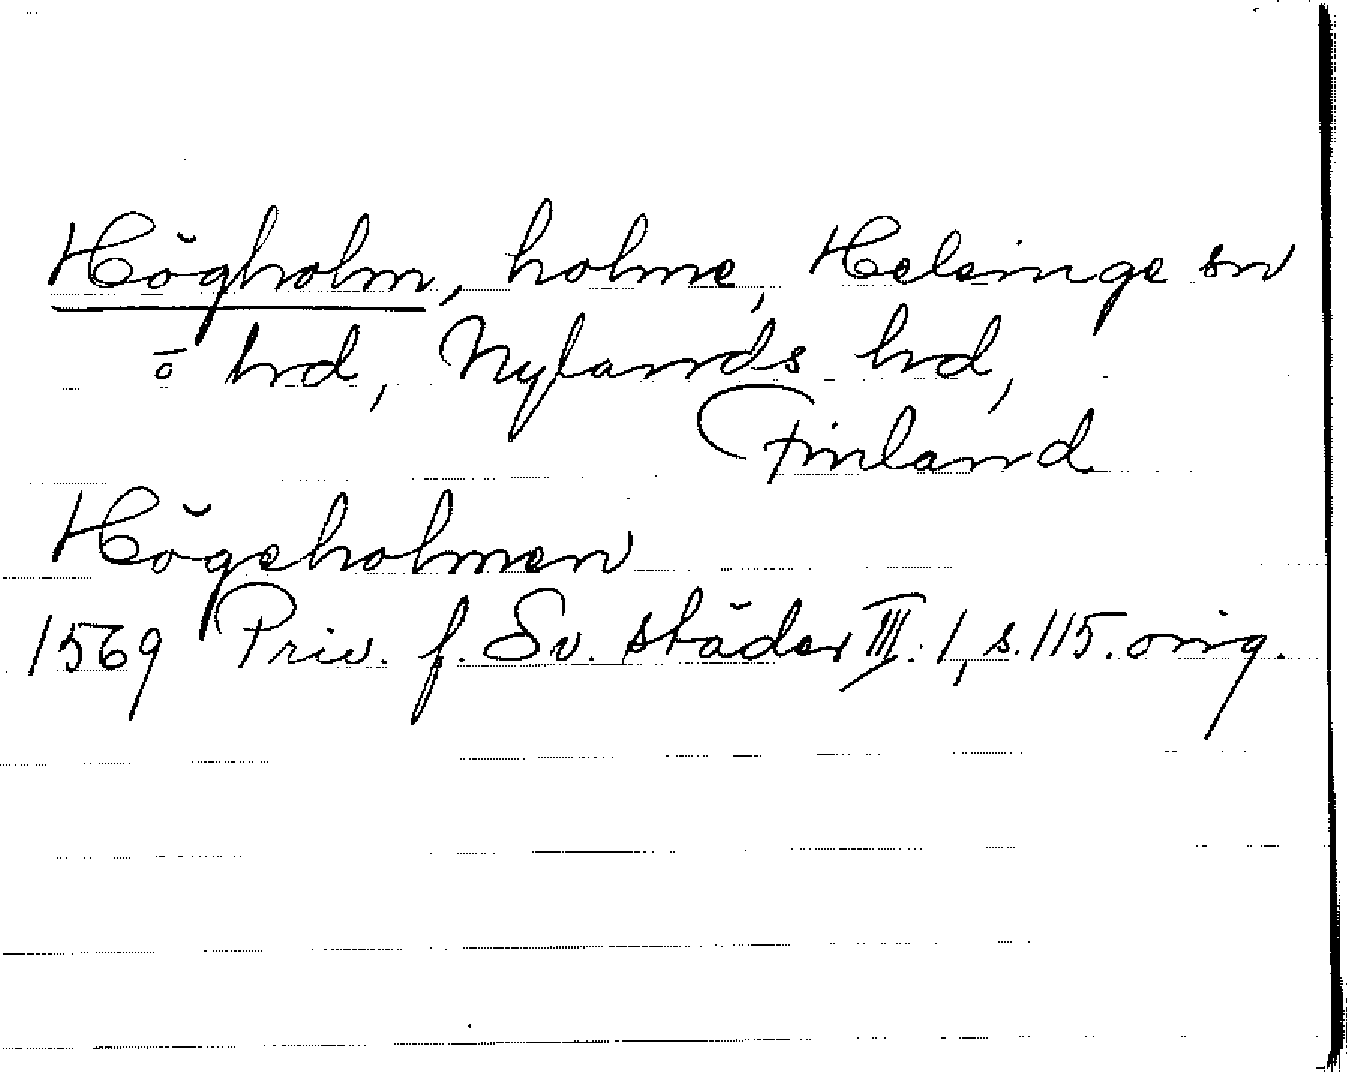 Högholm, holme, Helsinge sn
o hd, Nylands hd,
Finland
Högeholmen
1569 Priv. f. Sv. städer III:1, s. 115. orig.